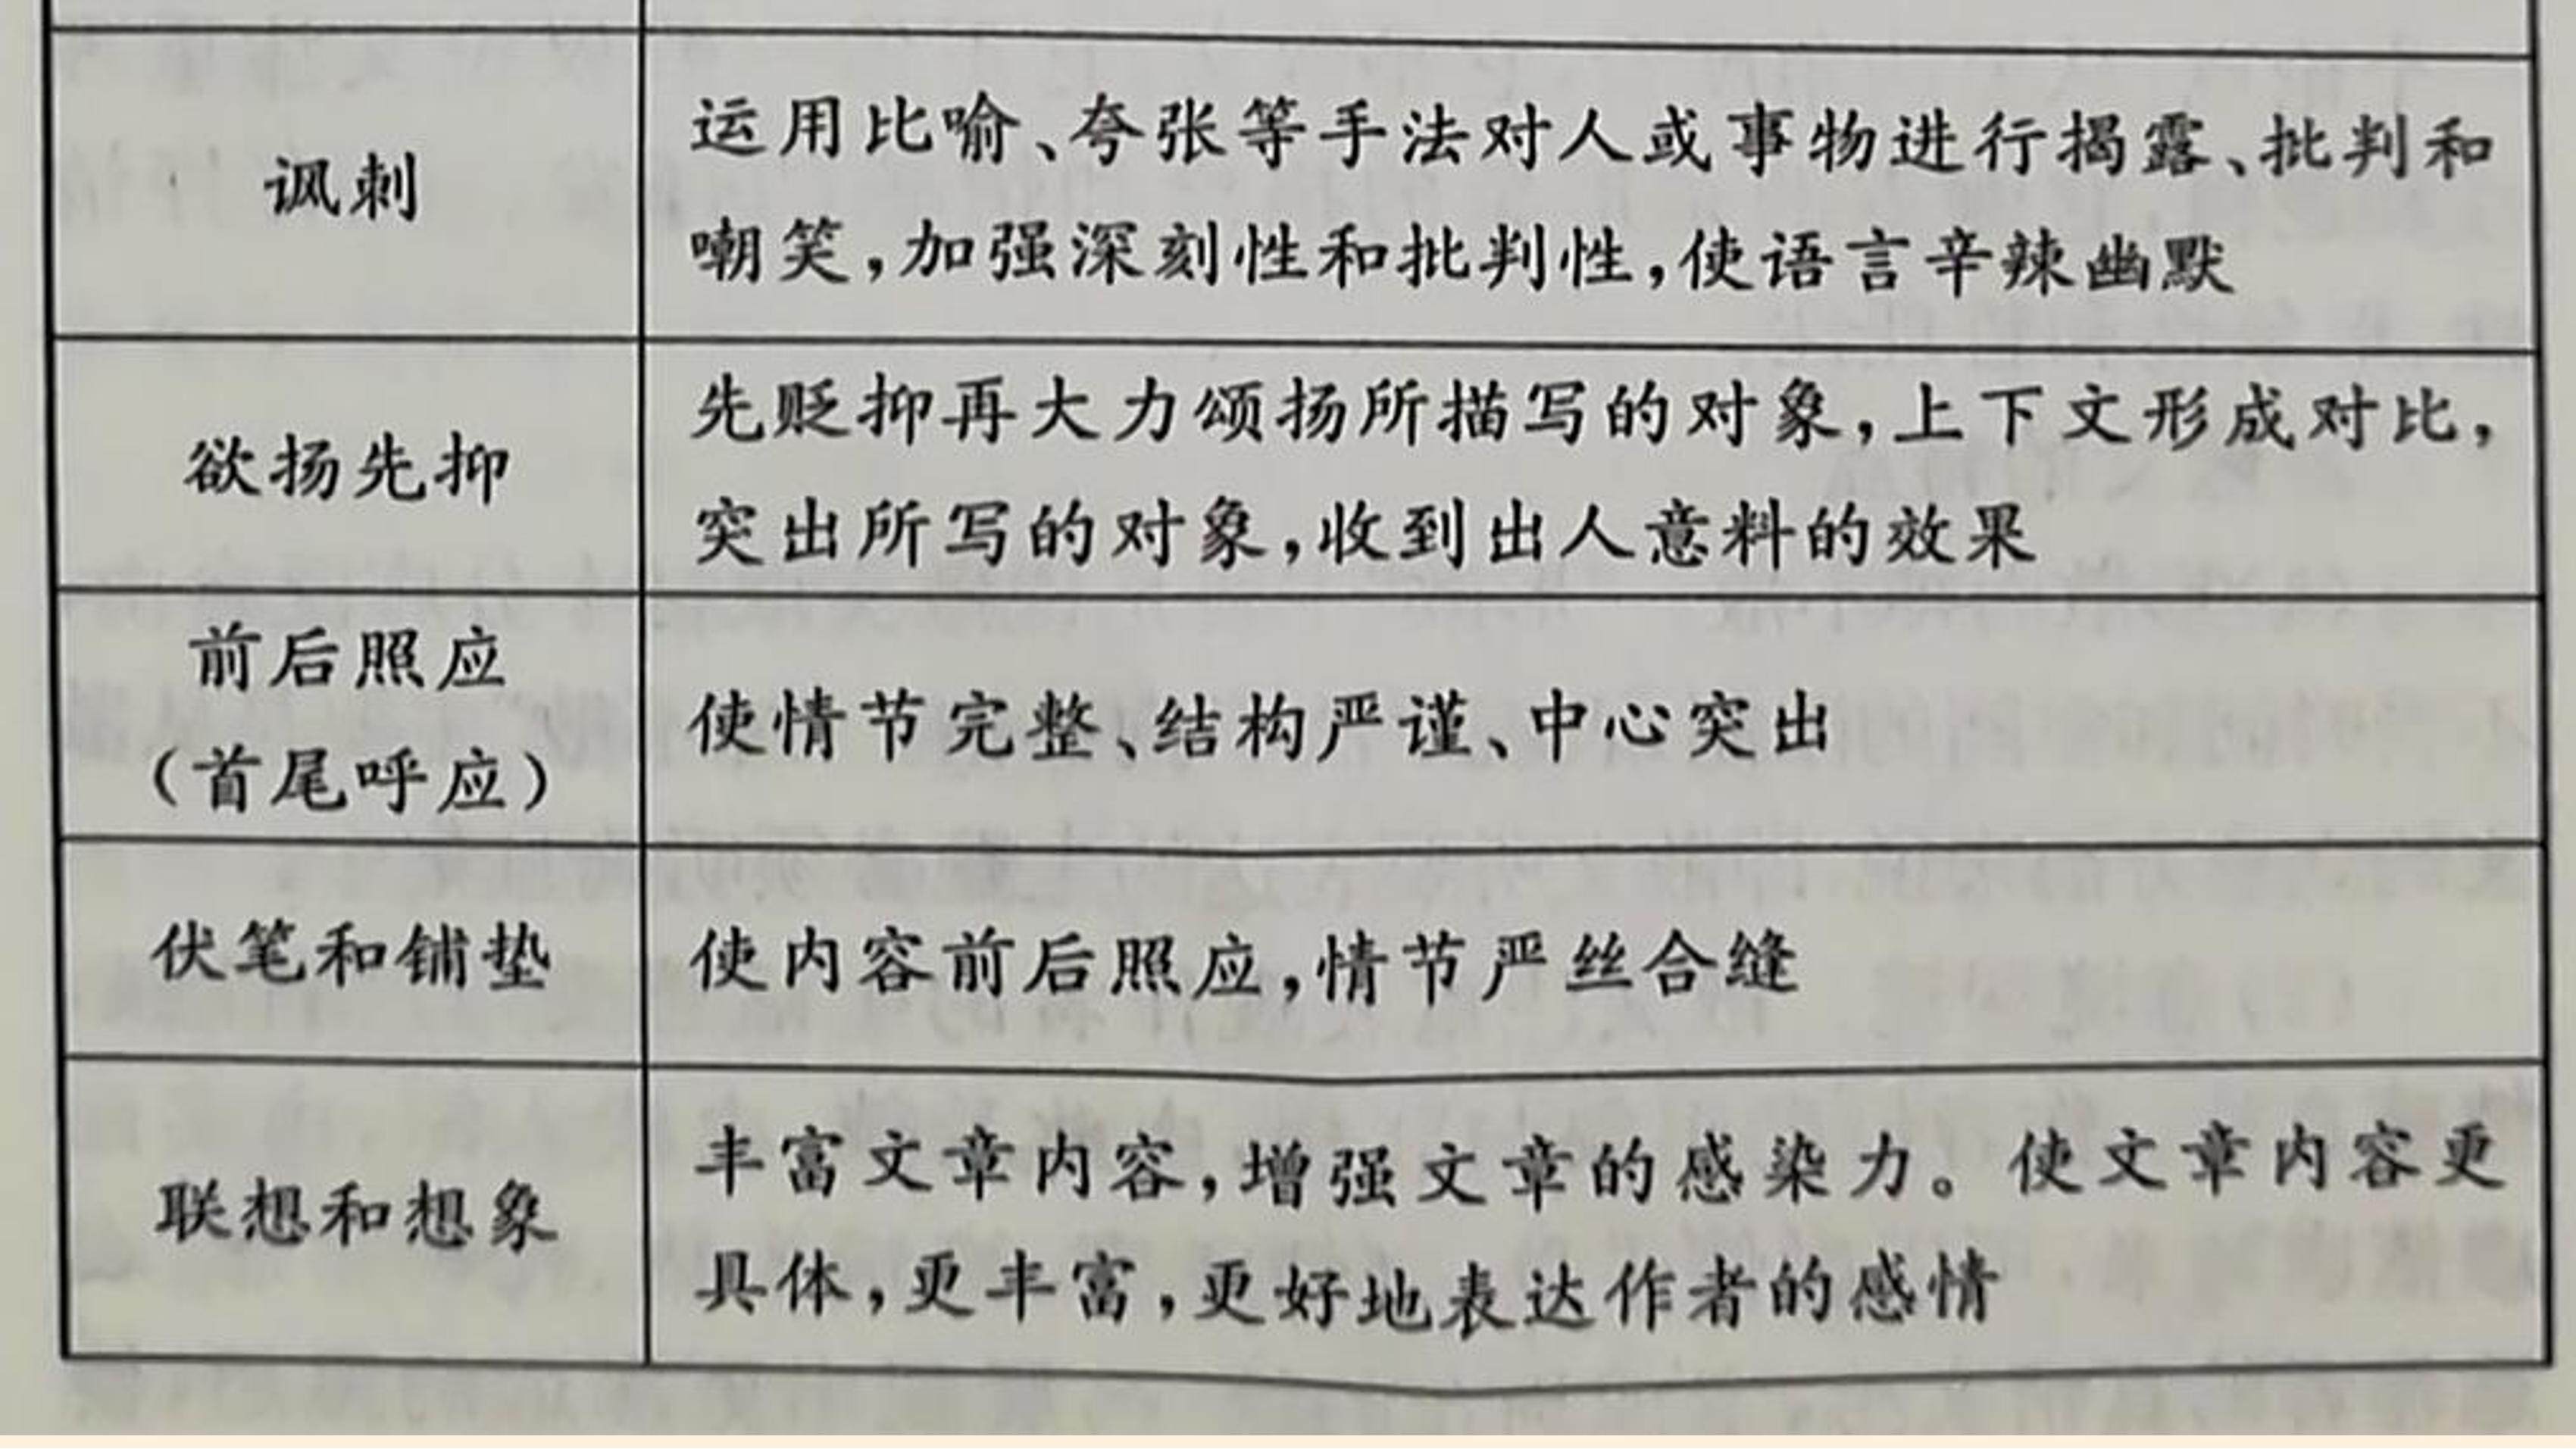 讽刺
运用比喻、夸张等手法对人或事物进行揭露、批判和
嘲笑,加强深刻性和批判性,使语言辛辣幽默
欲扬先抑
先贬抑再大力颂扬所描写的对象,上下文形成对比,
突出所写的对象,收到出人意料的效果
前后照应
(首尾呼应)
使情节完整、结构严谨、中心突出
伏笔和铺垫
使内容前后照应,情节严丝合缝
联想和想象
丰富文章内容,增强文章的感染力。使文章内容更
具体,更丰富,更好地表达作者的感情